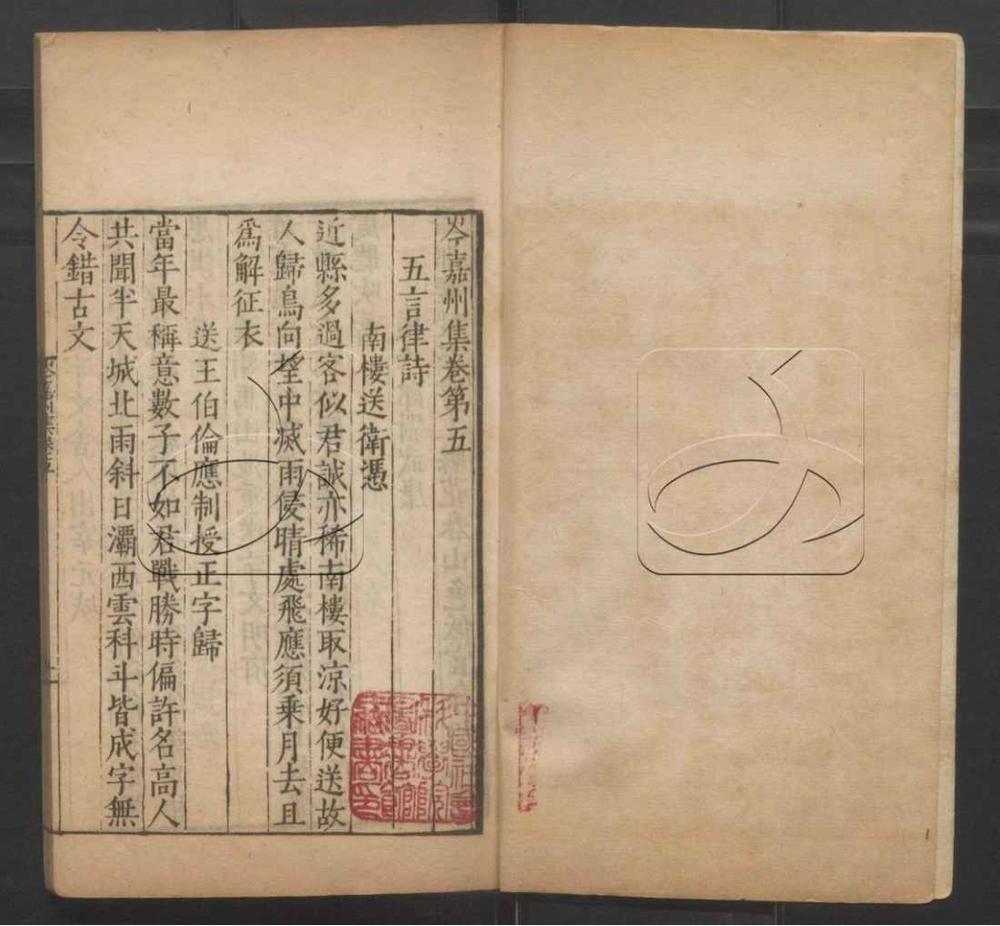 岑嘉州集卷第五
五言律詩
南樓送衛憑
近縣多過客似君誠亦稀南樓取涼好便送故
人歸鳥向望中滅雨侵晴處飛應須乗月去且
爲解征衣
送王伯倫應制授正字歸
當年最稱意數子不如君戰勝時偏許名高人
共聞半天城北雨斜日灞西雲科斗皆成字無
令錯古文